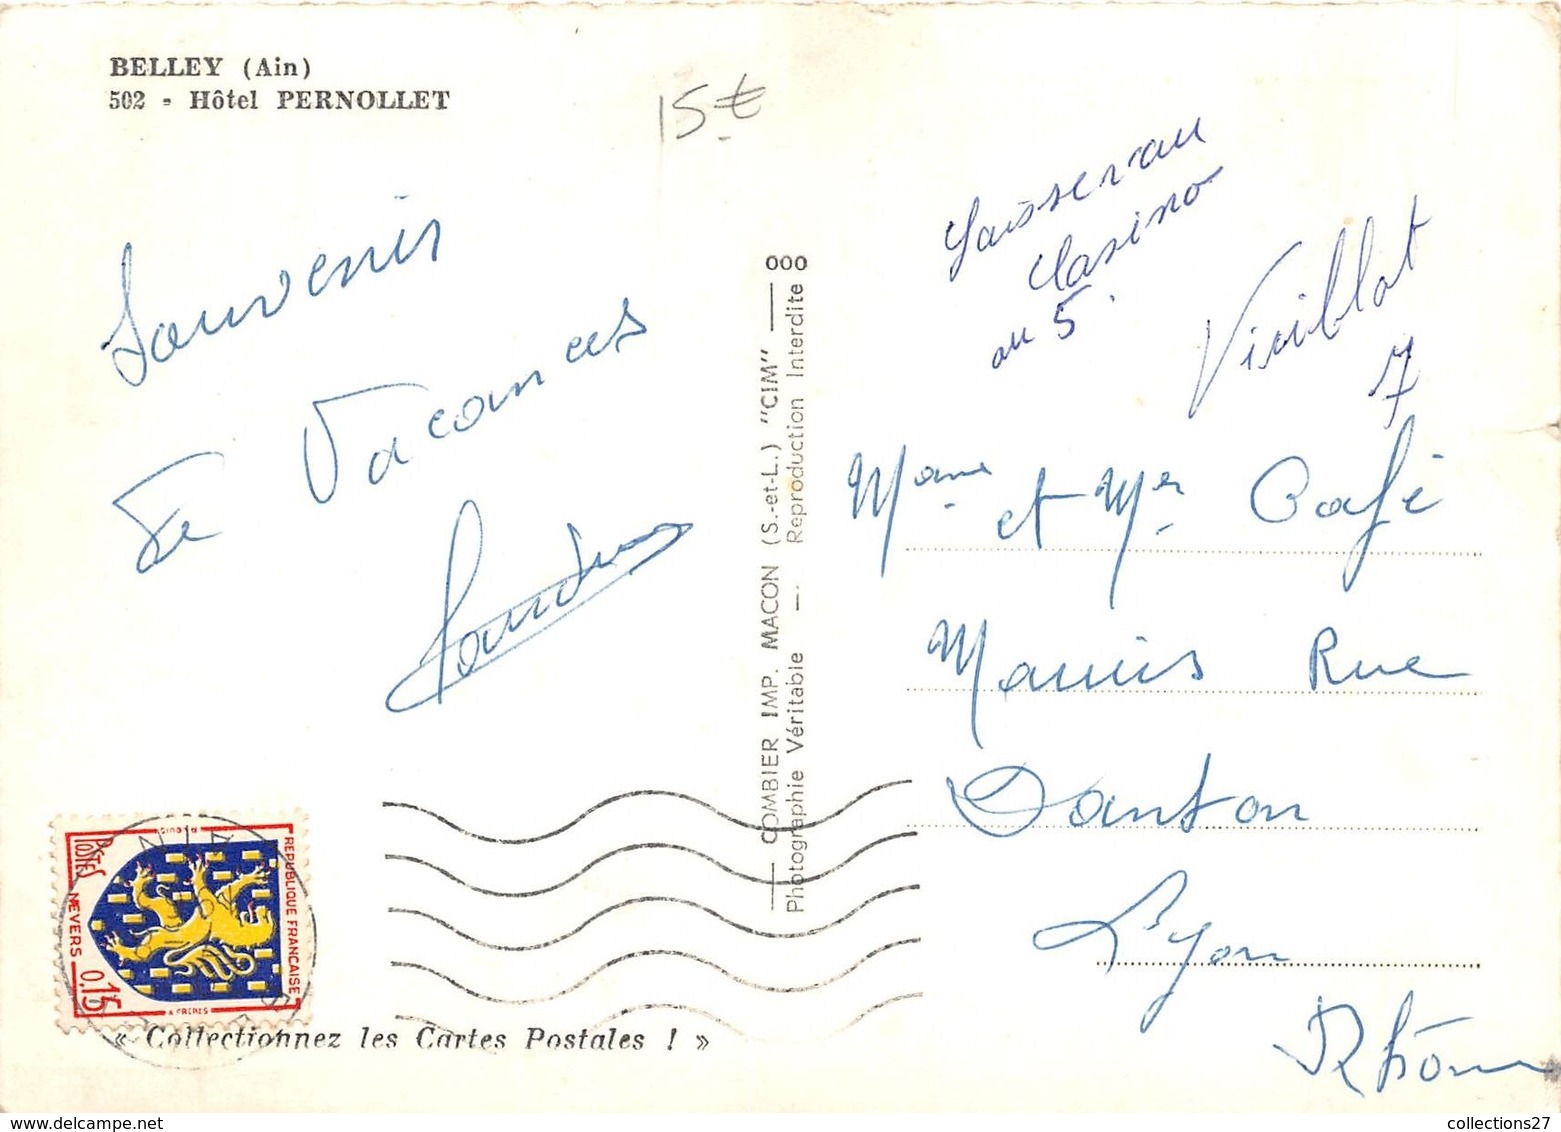 BELLEY (Ain)
502 - Hôtel PERNOLLET
15 €
Souvenir
de Vacances
Laisser au
Casino
au 5.
Viriblot
7
Mme et Mr Café
Marius Rue
Danton
Lyon
Rhône
COMBIER IMP. MACON (S.-et-L.) "CIM" — 000
Photographie Véritable — Reproduction Interdite
REPUBLIQUE FRANÇAISE
POSTES
NEVERS
0,15
« Collectionnez les Cartes Postales ! »
collections27